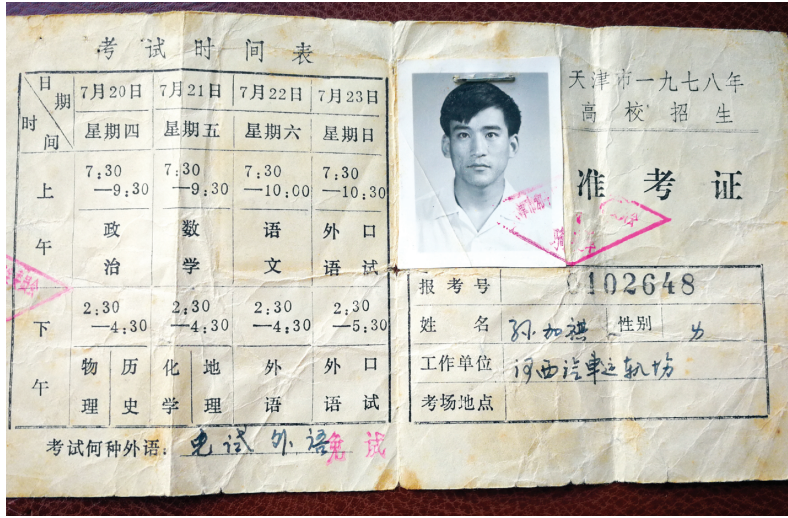 考试时间表
日期 时间 7月20日 7月21日 7月22日 7月23日
星期四 星期五 星期六 星期日
上午 7:30—9:30 7:30—9:30 7:30—10:00 7:30—10:30
政治 数学 语文 外语 口试
下午 2:30—4:30 2:30—4:30 2:30—4:30 2:30—5:30
物理 历史 化学 地理 外语 外语 口试
考试何种外语：免试外语 免试
天津市一九七八年
高校招生
准考证
报考号 0102648
姓名 孙加祺 性别 男
工作单位 河西汽车运输场
考场地点